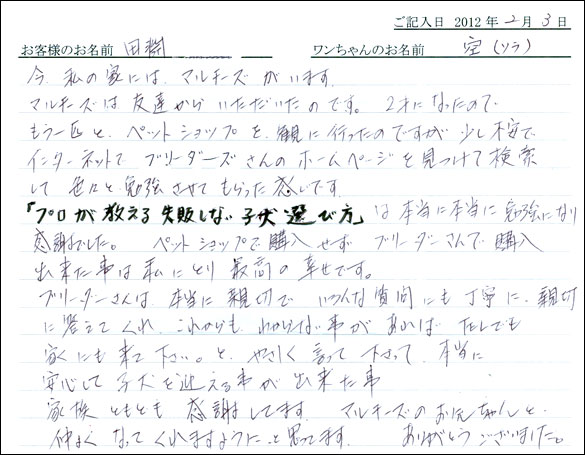 ご記入日 2012年 2月 3日
お客様のお名前 田渕 ワンちゃんのお名前 空(ソラ)
今、私の家には、マルチーズがいます。
マルチーズは友達からいただいたのです。2才になったので
もう一匹と、ペットショップを、観に行ったのですが少し不安で
インターネットで ブリーダーズさんのホームページを見つけて検索
して 色々と勉強させてもらった感じです。
「プロが教える失敗しない子犬選び方」は本当に本当に勉強になり
感謝でした。 ペットショップで購入せず ブリーダーさんで購入
出来た事は私にとり 最高の幸せです。
ブリーダーさんは 本当に親切で いろんな質問にも丁寧に、親切
に答えてくれ、これからも、わからない事があれば いつでも
家にも来て下さい。と、やさしく言って下さって、本当に
安心して子犬を迎える事が出来た事
家族ともども 感謝してます。 マルチーズのお兄ちゃんと、
仲よくなってくれますようにと思ってます。 ありがとうございました。